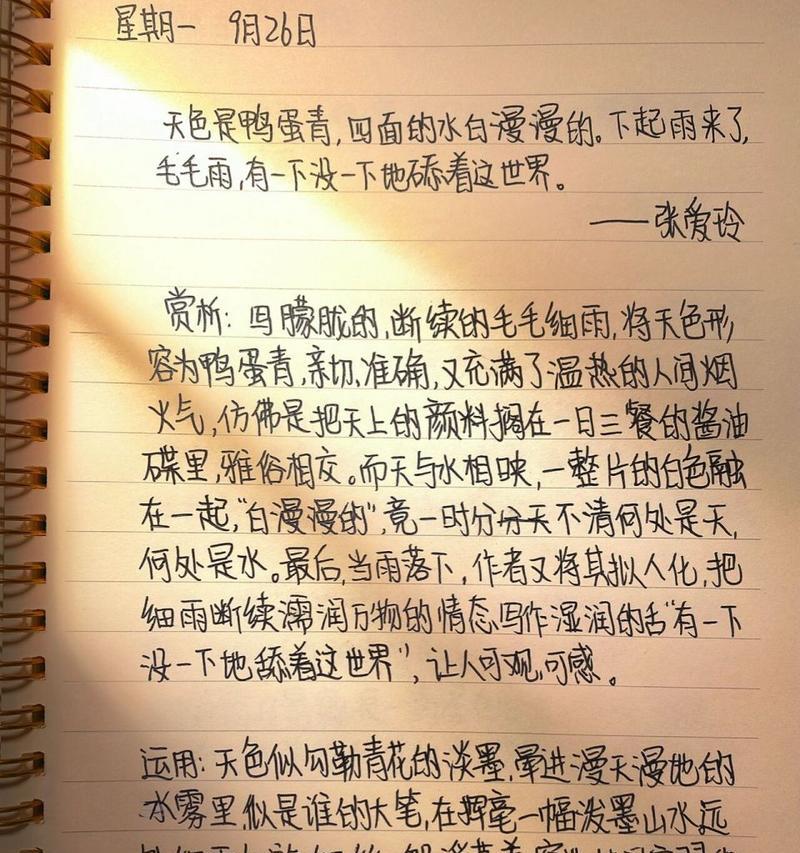 星期一 9月26日
天色是鸭蛋青,四面的水白漫漫的。下起雨来了,
毛毛雨,有一下没一下地舔着这世界。
——张爱玲
赏析:写朦胧的,断续的毛毛细雨,将天色形
容为鸭蛋青,亲切、准确,又充满了温热的人间烟
火气,仿佛是把天上的颜料搁在一日三餐的酱油
碟里,雅俗相交。而天与水相映,一整片的白色融
在一起,“白漫漫的”,竟一时分不清何处是天,
何处是水。最后,当雨落下,作者又将其拟人化,把
细雨断续濡润万物的情态写作湿润的舌“有一下
没一下地舔着这世界”,让人可观,可感。
运用:天色似勾勒青花的淡墨,晕进漫天漫地的
水雾里,似是谁的大笔,在挥毫一幅泼墨山水,远